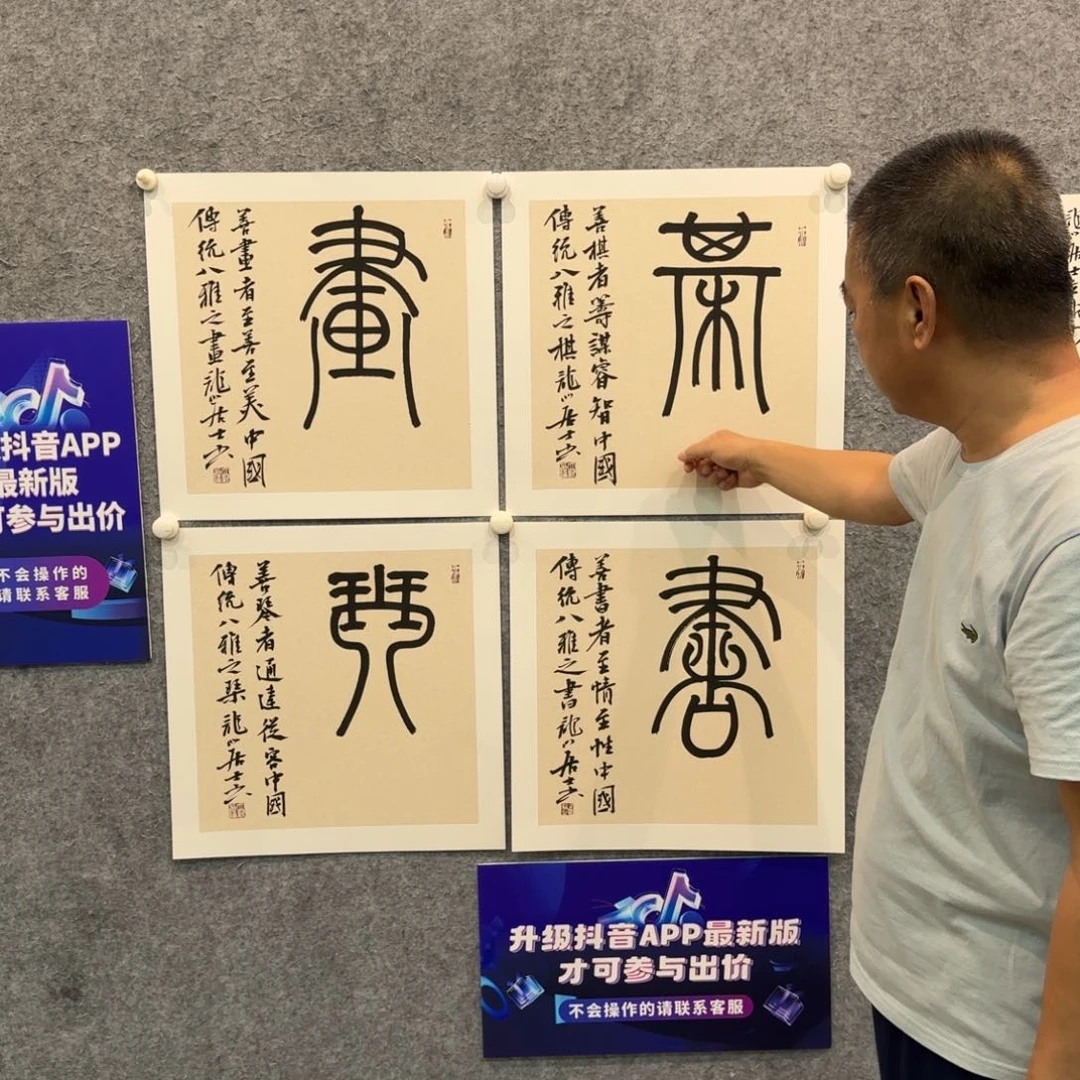 畫
善畫者至善至美中國
傳統八雅之畫龍山居士書
棊
善棋者籌謀睿智中國
傳統八雅之棋龍山居士書
琴
善琴者通達從容中國
傳統八雅之琹龍山居士書
書
善書者至情至性中國
傳統八雅之書龍山居士書
抖音APP
最新版
可参与出价
不会操作的
请联系客服
升级抖音APP最新版
才可参与出价
不会操作的请联系客服